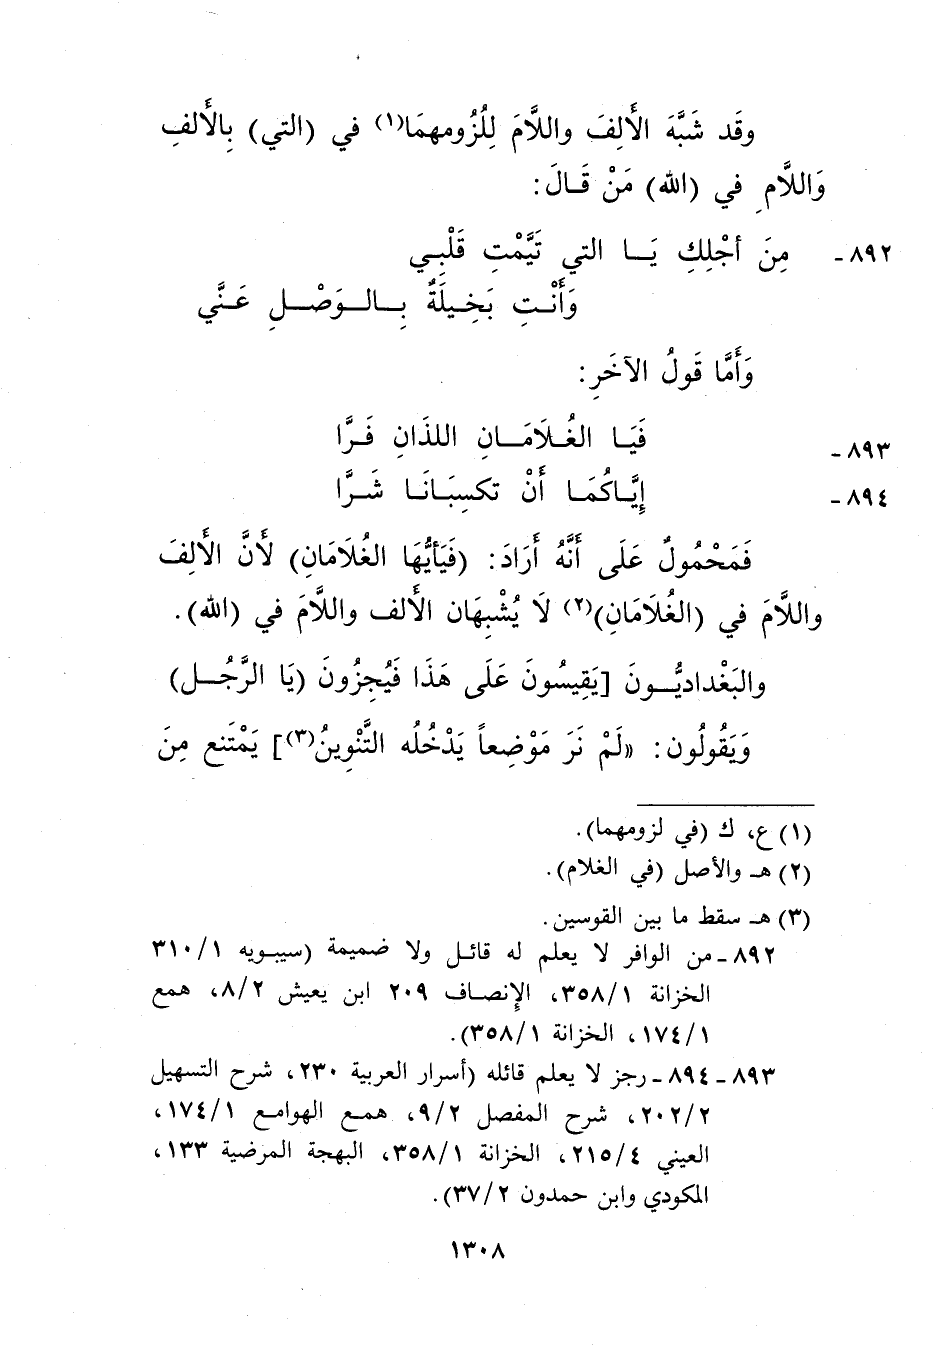 وقَد شَبَّهَ الأَلِفَ واللَّامَ لِلُزُومهِمَا(١) في (التي) بِالأَلفِ
وَاللَّامِ في (الله) مَنْ قَـالَ:
٨٩٢ - مِنَ أجْلِكِ يَـا التي تَيَّمْتِ قَلْبِـي
وَأَنْـتِ بَخِـيلَةٌ بِـالـوَصْـلِ عَـنَّي
وَأَمَّا قَولُ الآخَرِ:
٨٩٣ - فَيَـا الغُـلَامَـانِ اللذَانِ فَـرَّا
٨٩٤ - إيَّـاكُمَـا أَنْ تكسِبَـانَـا شَـرَّا
فَمَحْمُولٌ عَلَى أَنَّهُ أَرَادَ: (فَيَأيُّهَا الغُلَامَانِ) لأَنَّ الأَلِفَ
واللَّامَ في (الغُلَامَانِ)(٢) لَا يُشْبِهَان الأَلف واللَّامَ في (الله).
والبَغْداديُّـونَ [يَقِيسُونَ عَلَى هَذَا فَيُجِزُونَ (يَا الرَّجُـل)
وَيَقُولُون: «لَمْ نَرَ مَوْضِعاً يَدْخُلُه التَّنْوِينُ(٣)] يَمْتَنع مِنَ
(١) ع، ك (في لزومهما).
(٢) هـ والأصل (في الغلام).
(٣) هـ سقط ما بين القوسين.
٨٩٢ - من الوافر لا يعلم له قائـل ولا ضميمة (سيبـويه ٣١٠/١
الخزانة ٣٥٨/١، الإنصـاف ٢٠٩ ابن يعيش ٨/٢، همع
١٧٤/١، الخزانة ٣٥٨/١).
٨٩٣ - ٨٩٤ - رجز لا يعلم قائله (أسرار العربية ٢٣٠، شرح التسهيل
٢٠٢/٢، شرح المفصل ٩/٢، همـع الهوامـع ١٧٤/١،
العيني ٢١٥/٤، الخزانة ٣٥٨/١، البهجة المرضية ١٣٣،
المكودي وابن حمدون ٣٧/٢).
١٣٠٨